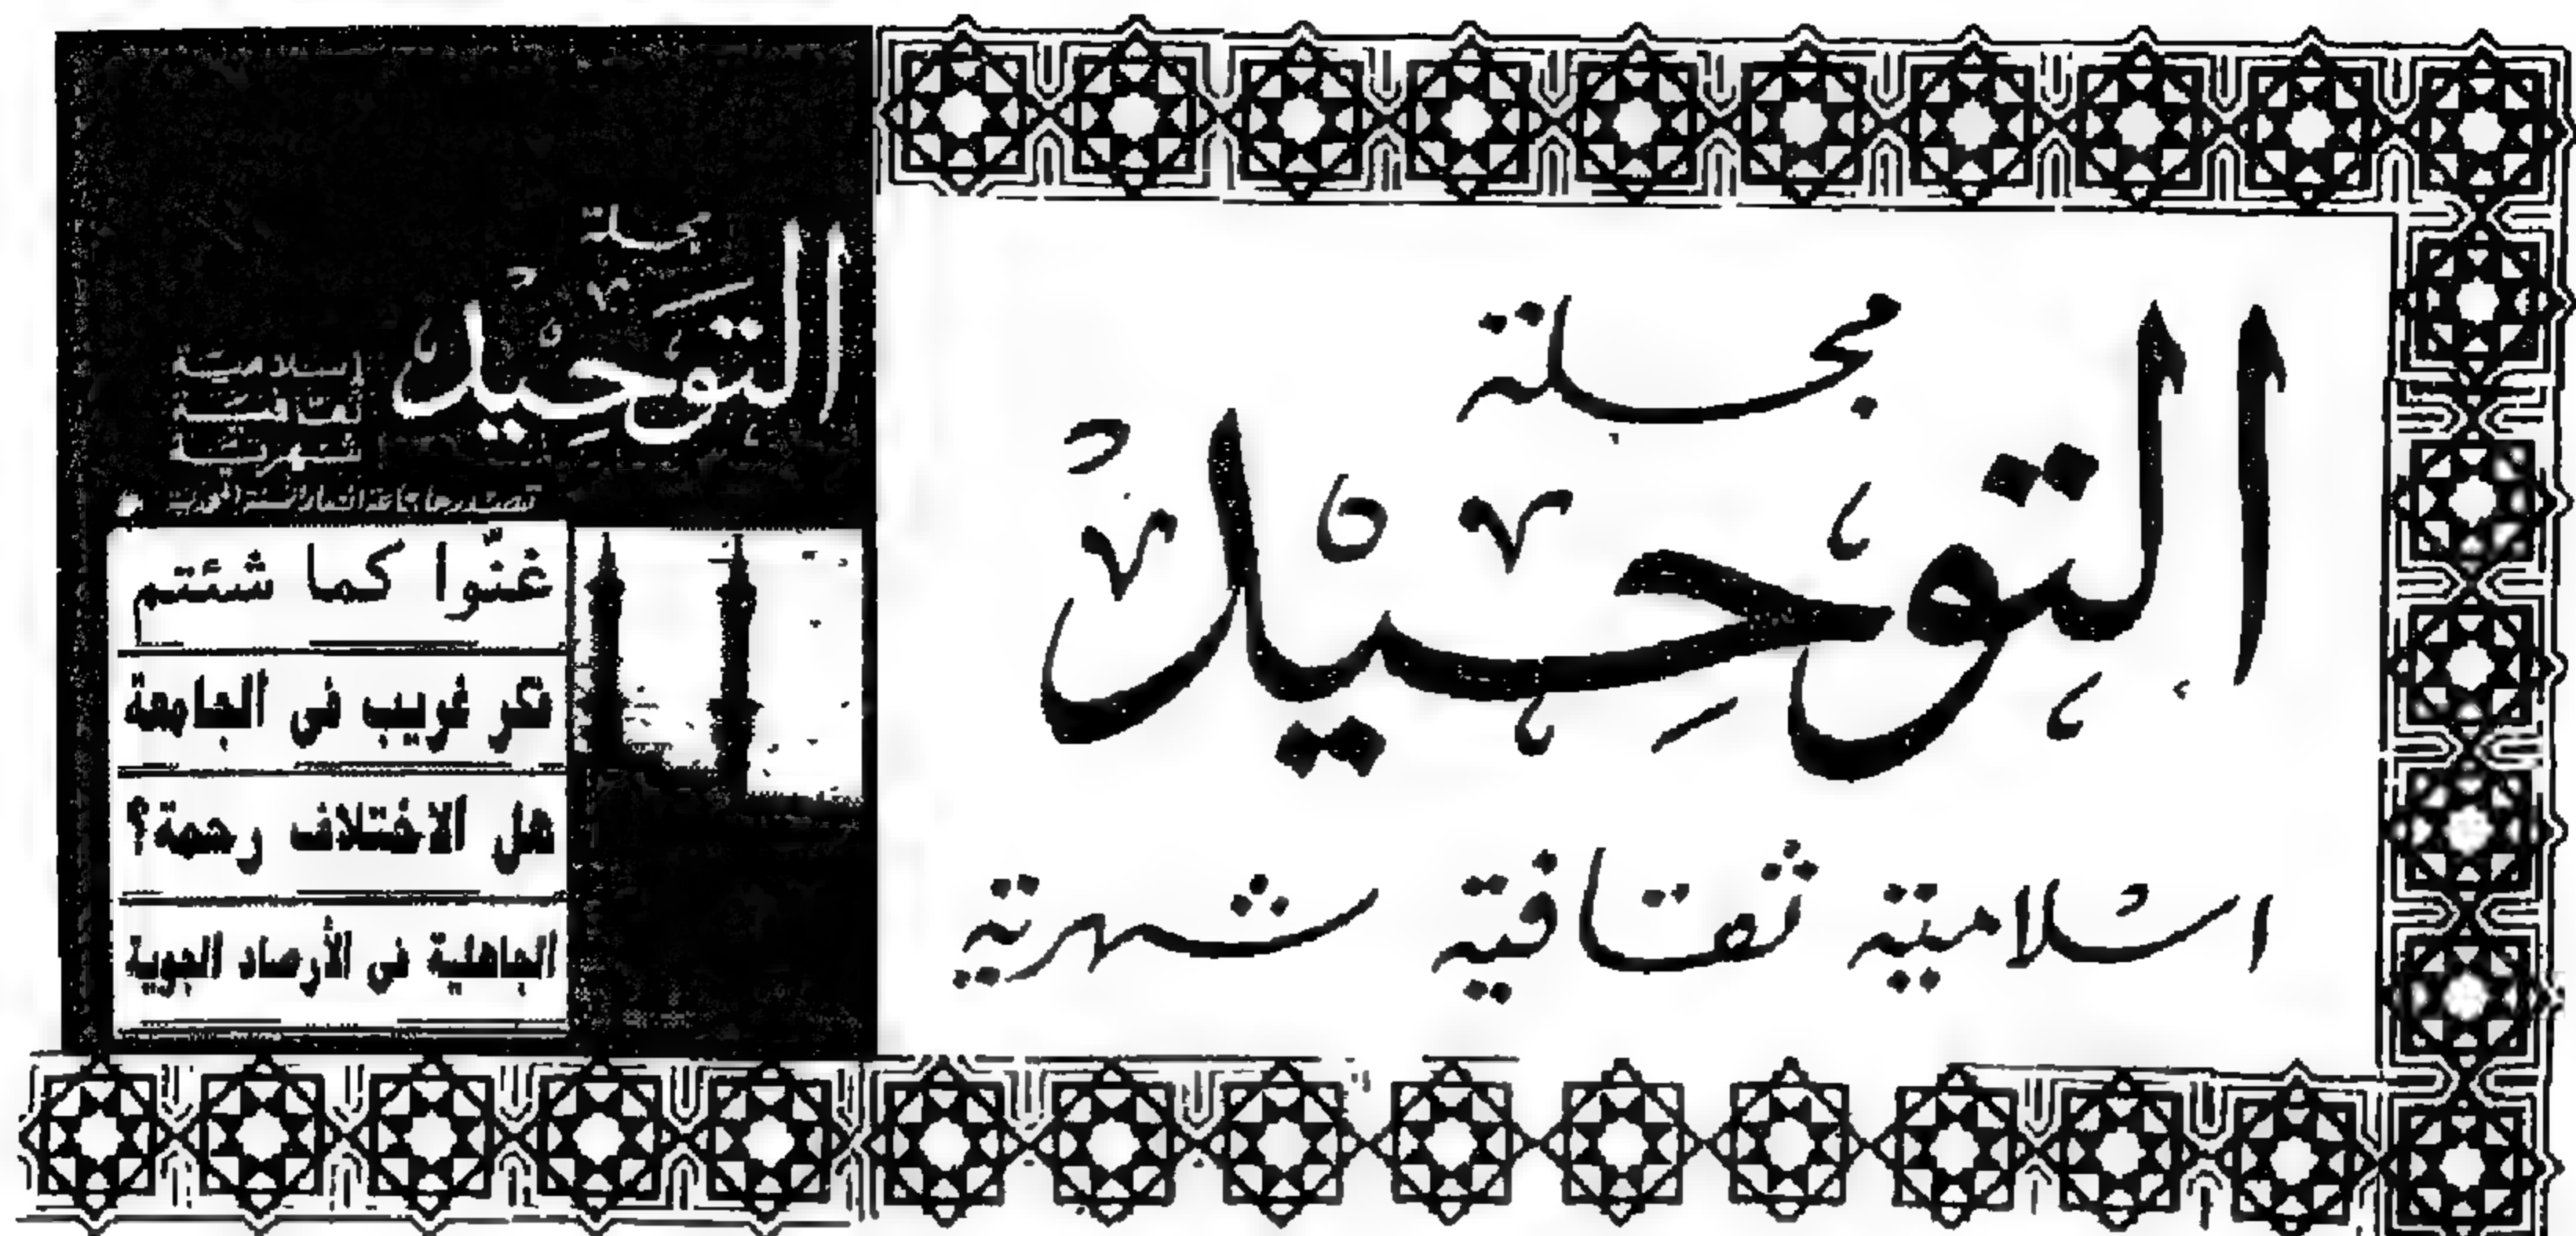 مجلة
التوحيد
اسلامية ثقافية شهرية
مجلة
التوحيد
إسلامية
ثقافية
شهرية
تصدرها جماعة أنصار السنة المحمدية
غنّوا كما شئتم
فكر غريب فى الجامعة
هل الاختلاف رحمة؟
الجاهلية فى الأرصاد الجوية